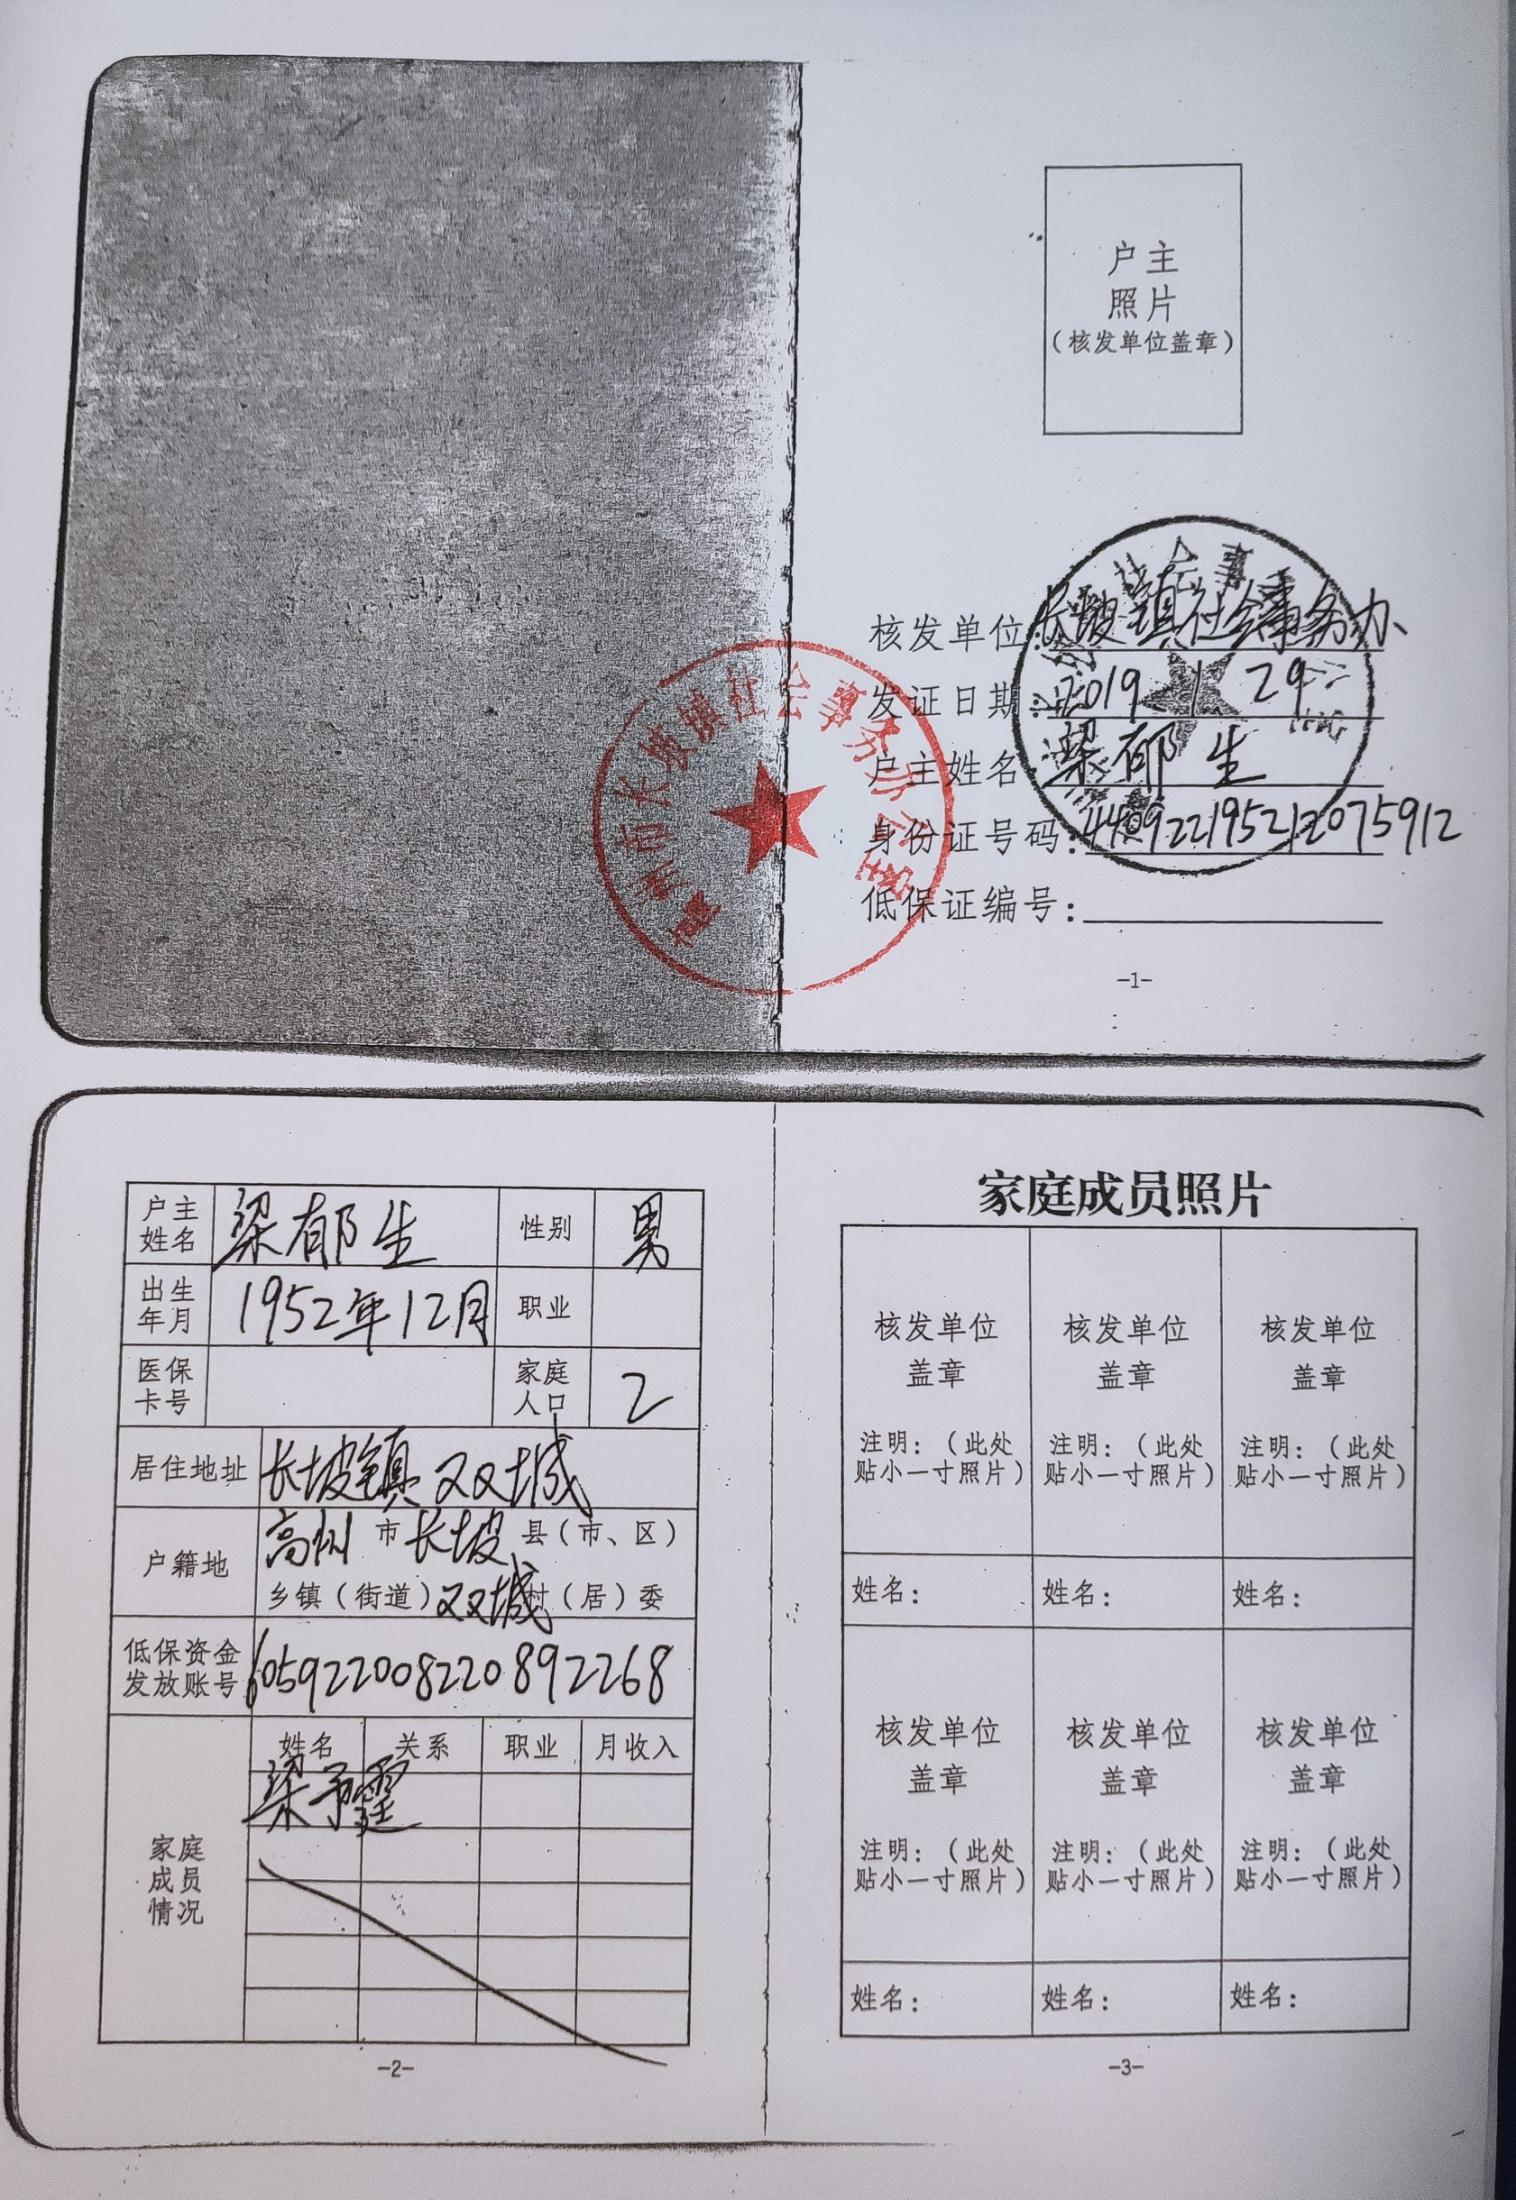 户主
照片
(核发单位盖章)
核发单位:长坡镇社会事务办
发证日期:2019 1 29
户主姓名:梁郁生
身份证号码:440922195212075912
低保证编号:
高州市长坡镇社会事务办公室
-1-
户主姓名 梁郁生 性别 男
出生年月 1952年12月 职业
医保卡号 家庭人口 2
居住地址 长坡镇双城
户籍地 高州市长坡县(市、区)
乡镇(街道)双城村(居)委
低保资金发放账号 6059220082208922​68
家庭成员情况 姓名 关系 职业 月收入
梁予霆
-2-
家庭成员照片
核发单位 核发单位 核发单位
盖章 盖章 盖章
注明:(此处 注明:(此处 注明:(此处
贴小一寸照片) 贴小一寸照片) 贴小一寸照片)
姓名: 姓名: 姓名:
核发单位 核发单位 核发单位
盖章 盖章 盖章
注明:(此处 注明:(此处 注明:(此处
贴小一寸照片) 贴小一寸照片) 贴小一寸照片)
姓名: 姓名: 姓名:
-3-